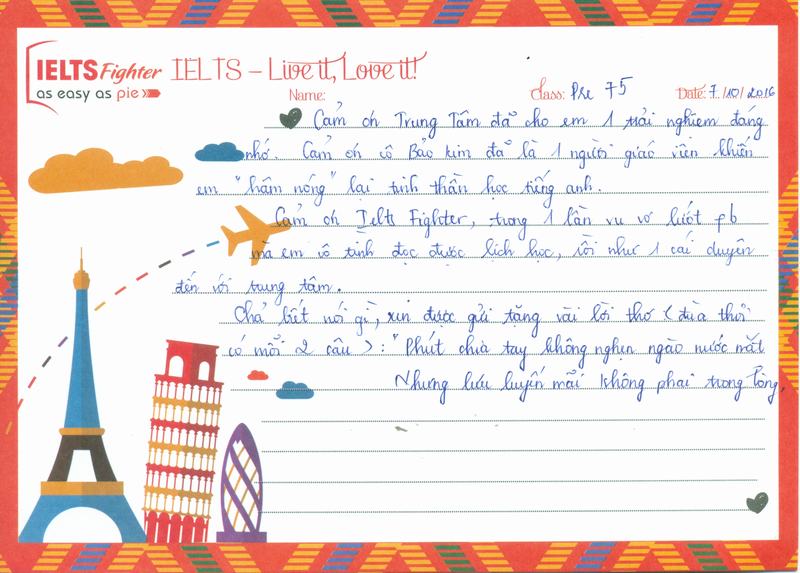 IELTS Fighter IELTS – Live it, Love it!
as easy as pie
Name: Class: Pre 75 Date: 7/10/2016
Cảm ơn Trung Tâm đã cho em 1 trải nghiệm đáng
nhớ. Cảm ơn cô Bảo Kim đã là 1 người giáo viên khiến
em "hâm nóng" lại tinh thần học tiếng anh.
Cảm ơn Ielts Fighter, trong 1 lần vu vơ lướt fb
mà em vô tình đọc được lịch học, rồi như 1 cái duyên
đến với trung tâm.
Chả biết nói gì, xin được gửi tặng vài lời thơ (đùa thôi
có mỗi 2 câu): "Phút chia tay không nghẹn ngào nước mắt
Nhưng lưu luyến mãi không phai trong lòng,